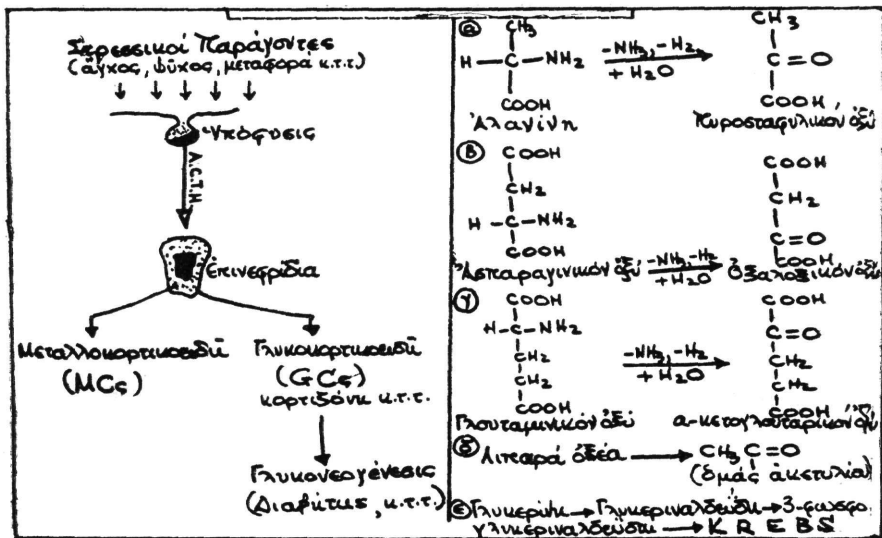 Στρεσσικοί Παράγοντες
(ἄγχος, ψῦχος, μεταφορά κ.τ.τ.)
Ὑπόφυσις
A.C.T.H.
Ἐπινεφρίδια
Μεταλλοκορτικοειδῆ
(MCς)
Γλυκοκορτικοειδῆ
(GCς)
κορτιζόνη κ.τ.τ.
Γλυκονεογένεσις
(Διαβήτης, κ.τ.τ.)
α
CH3
H—C—NH2
COOH
Ἀλανίνη
-NH3, -H2
+H2O
CH3
C=O
COOH
Πυροσταφυλικόν ὀξύ
β
COOH
CH2
H-C-NH2
COOH
Ἀσπαραγινικόν ὀξύ
-NH3, -H2
+H2O
COOH
CH2
C=O
COOH
Ὀξαλοξικόν ὀξύ
γ
COOH
H-C-NH2
CH2
CH2
COOH
Γλουταμινικόν ὀξύ
-NH3, -H2
+H2O
COOH
C=O
CH2
CH2
COOH
α-κετογλουταρικόν ὀξύ
δ Λιπαρά ὀξέα → CH3 C=O
(ὁμάς ἀκετυλίου)
ε Γλυκερίνη → Γλυκεριναλδεΰδη → 3-φωσφο
γλυκεριναλδεΰδη → KREBS